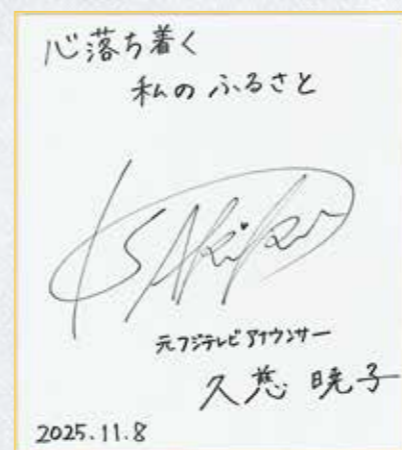 心落ち着く
私のふるさと
元フジテレビアナウンサー
久慈 暁子
2025.11.8